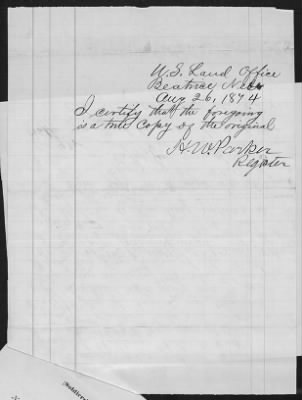 U.S. Land Office
Beatrice Nebr
Aug 26, 1874
I certify that the foregoing
is a true Copy of the original
H.W. Parker
Register